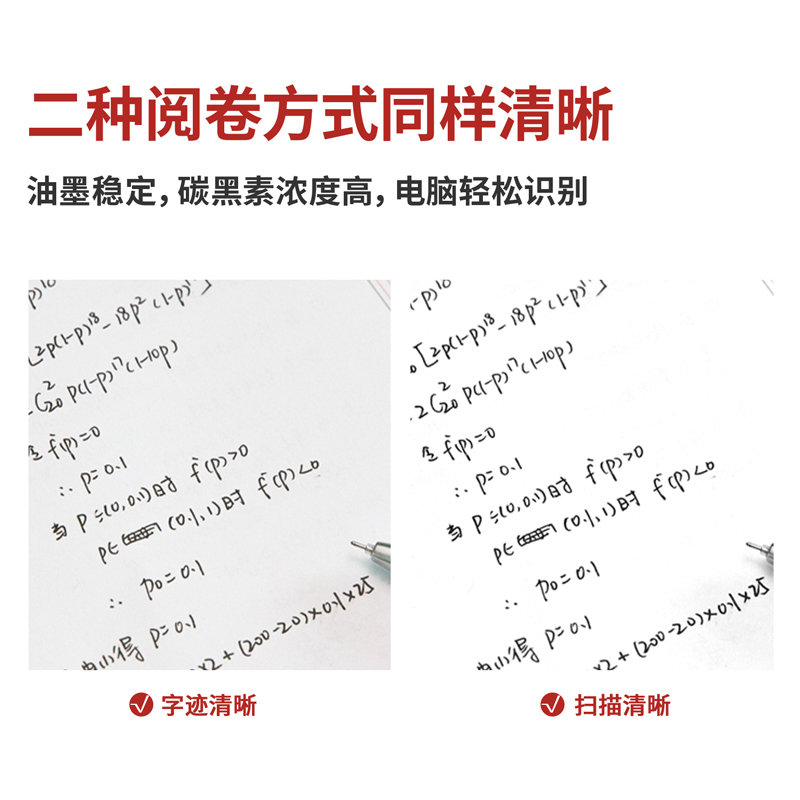 二种阅卷方式同样清晰
油墨稳定，碳黑素浓度高，电脑轻松识别
-p)¹⁰
[2p(1-p)¹⁸-18p²(1-p)¹⁷]
2C²₂₀ p(1-p)¹⁷(1-10p)
令f'(p)=0
∴ p=0.1
当 p∈(0,0.1)时 f'(p)>0
p∈ (0.1,1)时 f'(p)<0
∴ p₀=0.1
得 p=0.1
×2+(200-20)×0.1×25
-p)¹⁰
[2p(1-p)¹⁸-18p²(1-p)¹⁷]
2C²₂₀ p(1-p)¹⁷(1-10p)
令f'(p)=0
∴ p=0.1
当 p∈(0,0.1)时 f'(p)>0
p∈ (0.1,1)时 f'(p)<0
∴ p₀=0.1
得 p=0.1
×2+(200-20)×0.1×25
字迹清晰
扫描清晰